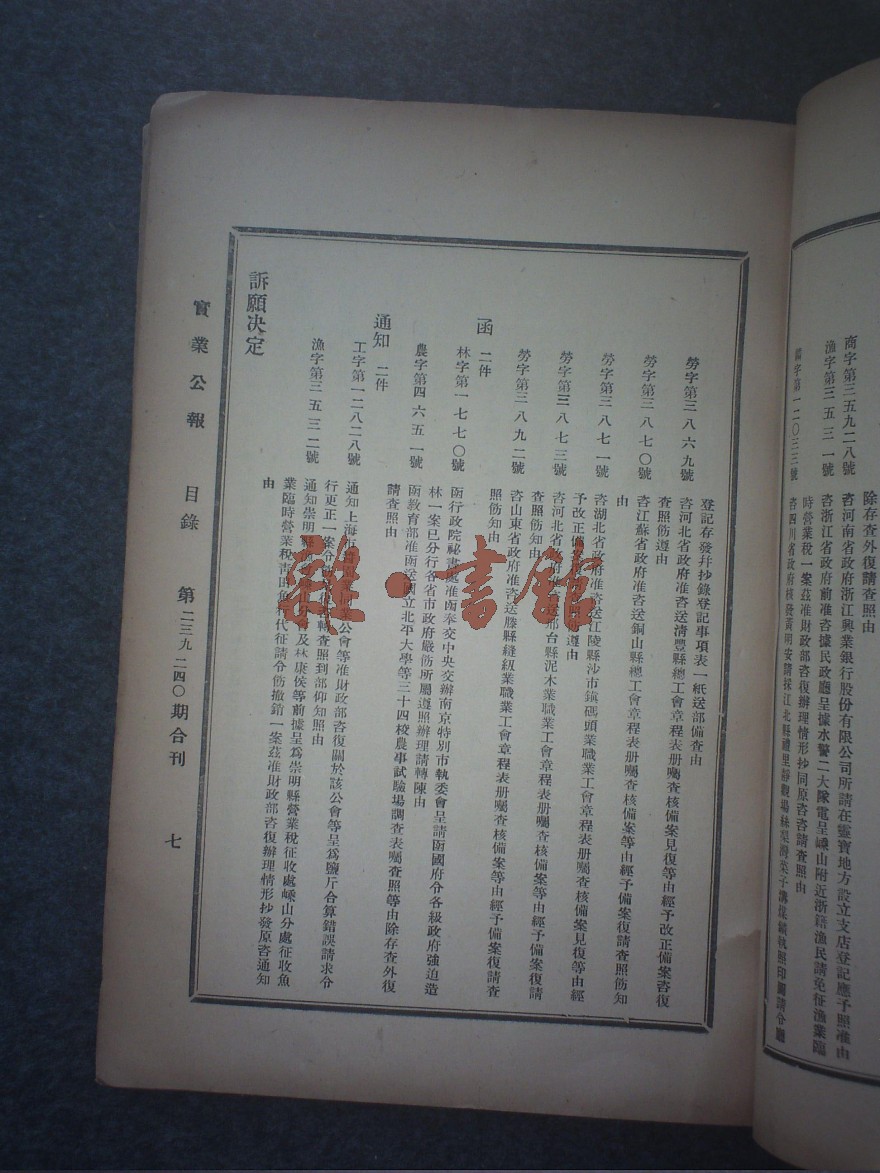 商字第三五九二八號
除存查外復請查照由
咨河南省政府浙江興業銀行股份有限公司所請在靈寶地方設立支店登記應予照准由
漁字第三五三一號
咨浙江省政府前准咨據民政廳呈據水警二大隊電呈嵊山附近浙籍漁民請免征漁業臨
時營業稅一案茲准財政部咨復辦理情形抄同原咨咨請查照由
字第一二〇三三號
咨四川省政府核發黃明安請採江北縣禮里靜觀場
登記存發幷抄錄登記事項表一紙送部備查由
勞字第三八六九號
咨河北省政府准咨送淸豐縣總工會章程表册囑查核備案見復等由經予改正備案咨復
查照飭遵由
勞字第三八七〇號
咨江蘇省政府准咨送銅山縣總工會章程表册囑查核備案等由經予備案復請查照飭知
由
勞字第三八七一號
咨湖北省政府准咨送江陵縣沙市鎭碼頭業職業工會章程表册囑查核備案見復等由經
予改正備案遵由
勞字第三八七三號
咨河北省政府准咨送邢台縣泥木業職業工會章程表册囑查核備案等由經予備案復請
查照飭知由
勞字第三八九二號
咨山東省政府准咨送滕縣縫紉業職業工會章程表册囑查核備案等由經予備案復請查
照飭知由
函 二件
林字第一七七〇號
函行政院祕書處准函奉交中央交辦南京特別市執委會呈請函國府令各級政府強迫造
林一案已分行各省市政府嚴飭所屬遵照辦理請轉陳由
農字第四六五一號
函敎育部准函送國立北平大學等三十四校農事試驗場調查表囑查照等由除存查外復
請查照由
通知 二件
工字第一二八二八號
通知上海市公會等准財政部咨復關於該公會等呈爲鹽斤合算錯誤請求令
行更正一案令查照到部仰知照由
漁字第三五三二號
通知崇明縣及林康侯等前據呈爲崇明縣營業稅征收處嵊山分處征收魚
業臨時營業稅靑田魚代征請令飭撤銷一案茲准財政部咨復辦理情形抄發原咨通知
由
訴願決定
實業公報 目錄 第二三九二四〇期合刊 七
雜·書館